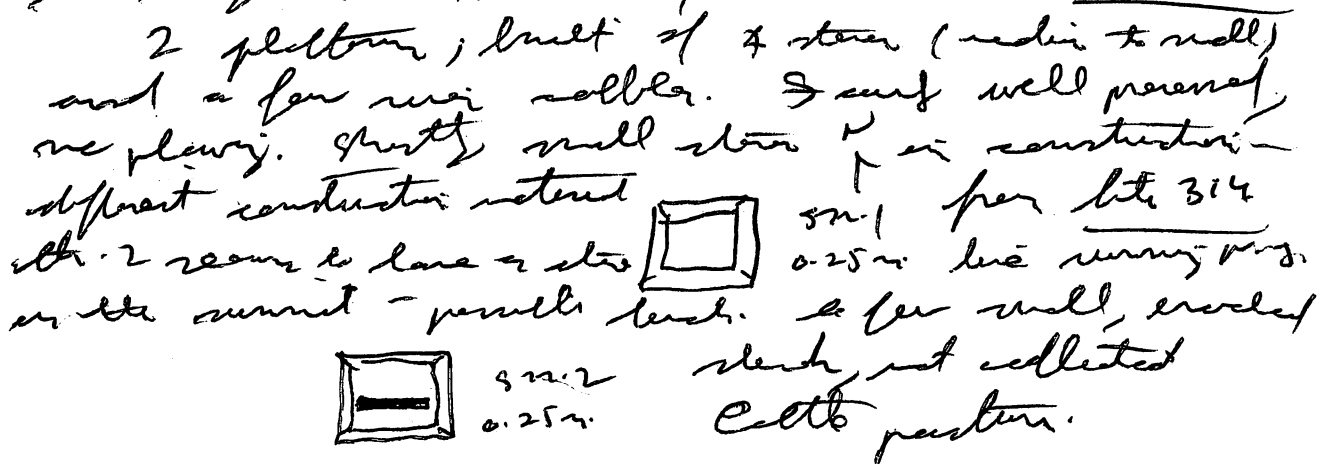 2 platforms, built of stones (medium to small)
and a few river cobbles. surf well preserved,
no plowing. Mostly small stones in construction -
different construction material from site 314
Str. 2 seems to have a stone line running
on the summit - possible bench. a few small, eroded
sherds, not collected
Cattle pasture.
Str. 1
0.25 m.
Str. 2
0.25 m.